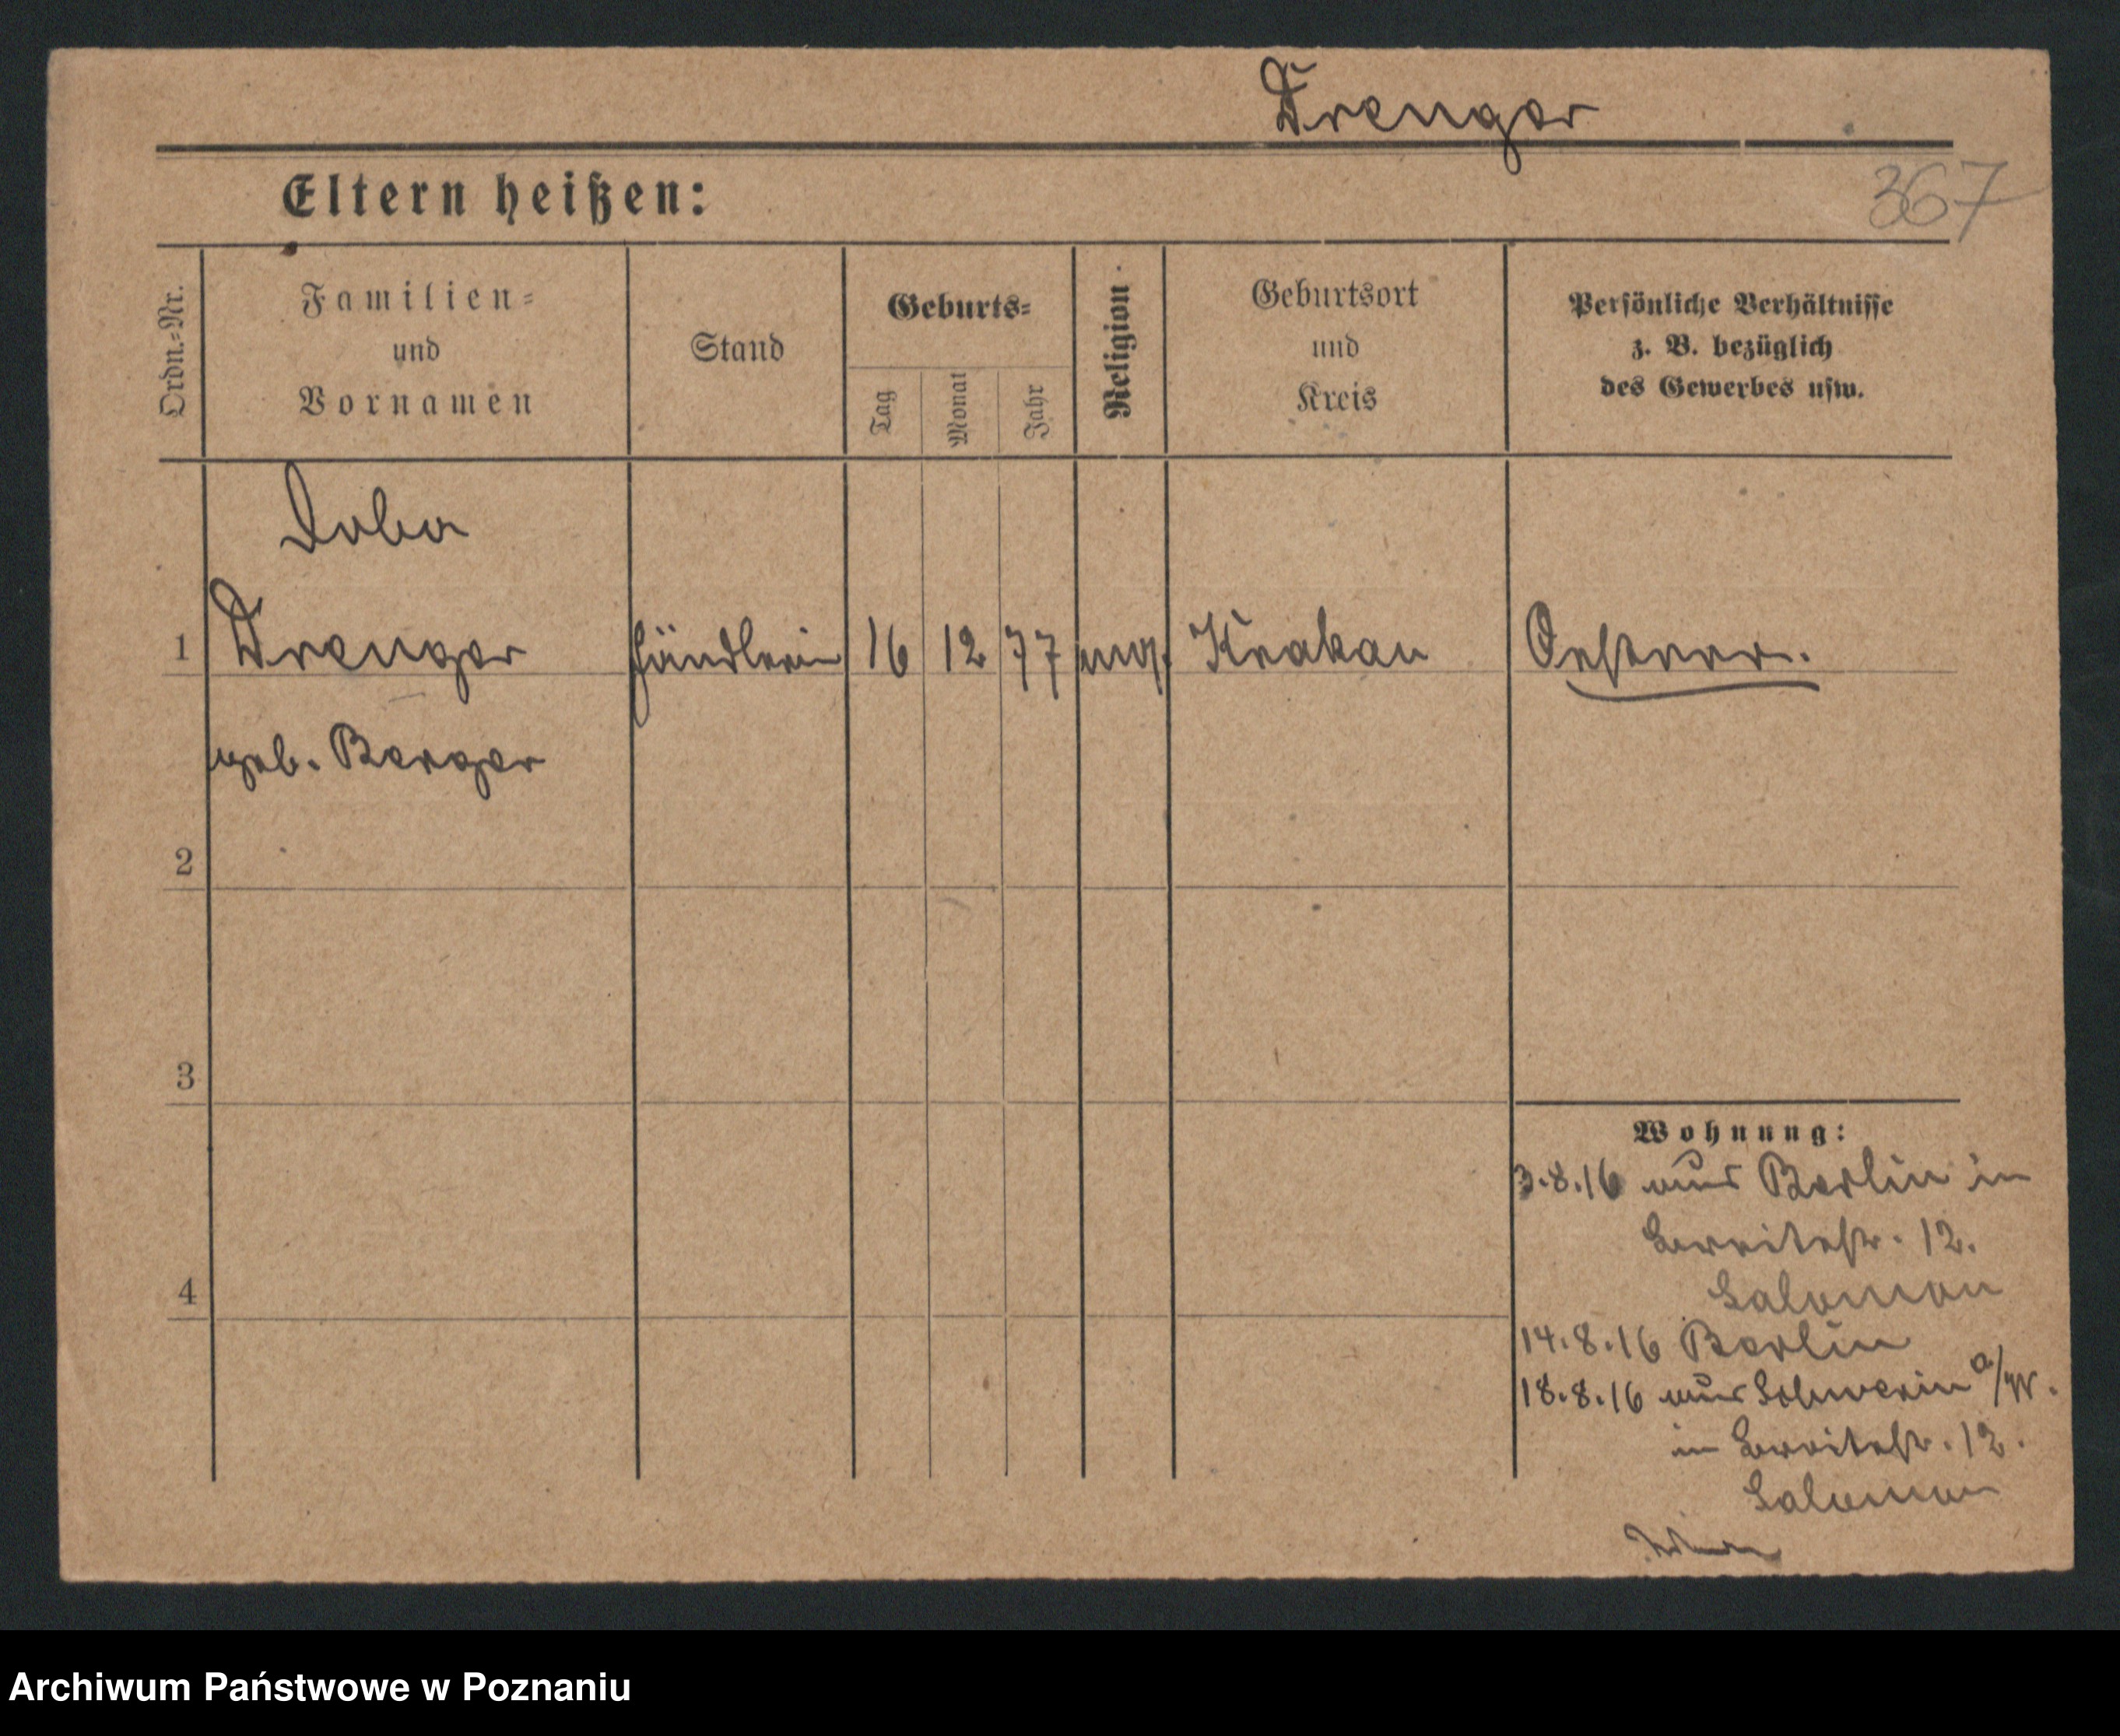 Drenger
Eltern heißen:
367
Ordn.-Nr.
Familien-
und
Vornamen
Stand
Geburts-
Tag
Monat
Jahr
Religion
Geburtsort
und
Kreis
Persönliche Verhältnisse
z. B. bezüglich
des Gewerbes usw.
Doba
1 Drenger Händlerin 16 12 77 mos. Krakau Oesterr.
geb. Berger
2
3
4
Wohnung:
3.8.16 aus Berlin in
Breitestr. 12.
Salomon
14.8.16 Berlin
18.8.16 aus Schwerin a/W.
in Breitestr. 12.
Salomon
Archiwum Państwowe w Poznaniu